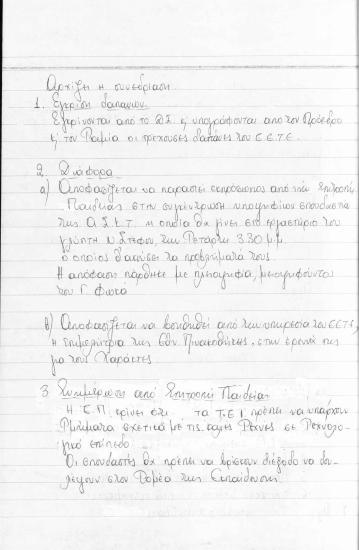 Αρχίζει η συνεδρίαση
1. Έγκριση δαπανών.
Εγκρίνονται από το Δ.Σ. κ υπογράφονται από τον Πρόεδρο
κ τον Ταμία οι τρέχουσες δαπάνες του Ε.Ε.Τ.Ε.
2. Διάφορα
α) Αποφασίζεται να παραστεί εκπρόσωπος από την Επιτροπή
Παιδείας στην συγκέντρωση υποψηφίων σπουδαστών
της Α.Σ.Κ.Τ. η οποία θα γίνει στο εργαστήριο του
γλύπτη Ν. Στέφου, την Τετάρτη 3.30 μ.μ.
ο οποίος θα ακούσει τα προβλήματά τους.
Η απόφαση πάρθηκε με πλειοψηφία, μειοψηφούντος
του Γ. Φωκά
β) Αποφασίζεται να βοηθηθεί από την υπηρεσία του ΕΕΤΕ,
η επιμελήτρια της Εθν. Πινακοθήκης, στην έρευνά της
για τους Χαράκτες.
3 Ενημέρωση από Επιτροπή Παιδείας
Η Ε.Π. κρίνει ότι τα Τ.Ε.Ι πρέπει να υπάρχουν
Τμήματα σχετικά με τις καλές Τέχνες σε Τεχνολο-
γικό επίπεδο
Οι σπουδαστές θα πρέπει να βρίσκουν διέξοδο να δου-
λέψουν στον Τομέα της Εκπαίδευσης.